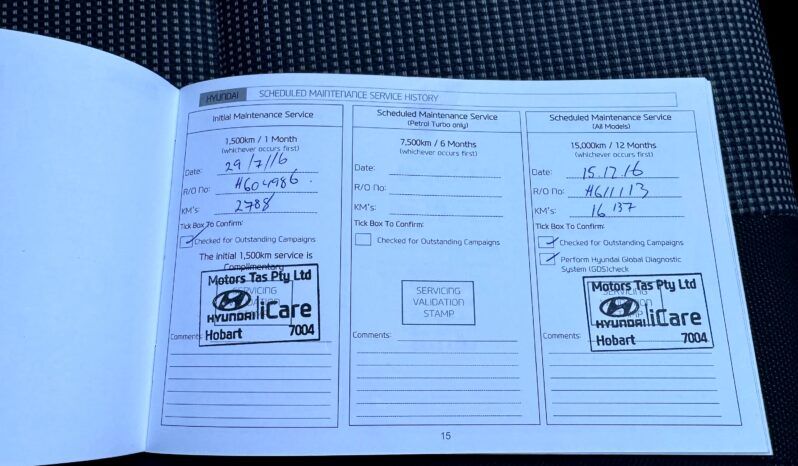 HYUNDAI SCHEDULED MAINTENANCE SERVICE HISTORY
Initial Maintenance Service
1,500km / 1 Month
(whichever occurs first)
Date: 29/7/16
R/O No: H604986
KM's: 2788
Tick Box To Confirm:
Checked for Outstanding Campaigns
The initial 1,500km service is
Complimentary
Motors Tas Pty Ltd
HYUNDAI iCare
Hobart 7004
Comments:
Scheduled Maintenance Service
(Petrol Turbo only)
7,500km / 6 Months
(whichever occurs first)
Date:
R/O No:
KM's:
Tick Box To Confirm:
Checked for Outstanding Campaigns
SERVICING
VALIDATION
STAMP
Comments:
Scheduled Maintenance Service
(All Models)
15,000km / 12 Months
(whichever occurs first)
Date: 15.12.16
R/O No: H611113
KM's: 16 137
Tick Box To Confirm:
Checked for Outstanding Campaigns
Perform Hyundai Global Diagnostic
System (GDS)check
Motors Tas Pty Ltd
HYUNDAI iCare
Hobart 7004
Comments:
15